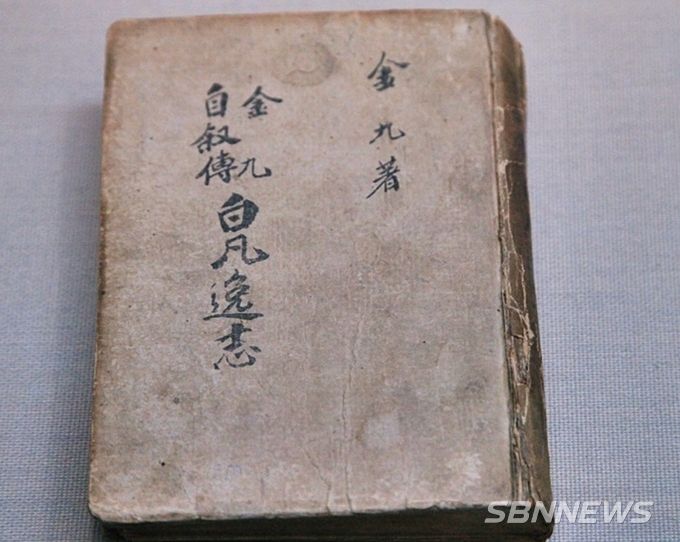 金九著
金九
自叙傳
白凡逸志
SBNNEWS